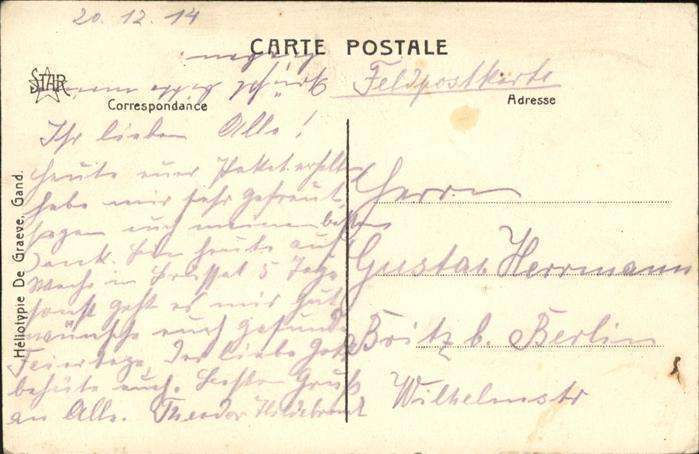 20.12.14
CARTE POSTALE
STAR
Feldpostkarte
Correspondance
Adresse
Ihr lieben Alle!
Heute euer Paket erhalten
habe mir sehr gefreut,
sagen euch meinen besten
Dank. Bin heute auf
Wache in Brüssel 5 Tage
sonst geht es mir gut
wünsche euch gesunde
Feiertage, Der liebe Gott
behüte euch. Besten Gruß
an Alle. Theodor Hildebrandt
Herrn
Gustav Herrmann
Britz b. Berlin
Wilhelmstr
Héliotypie De Graeve, Gand.